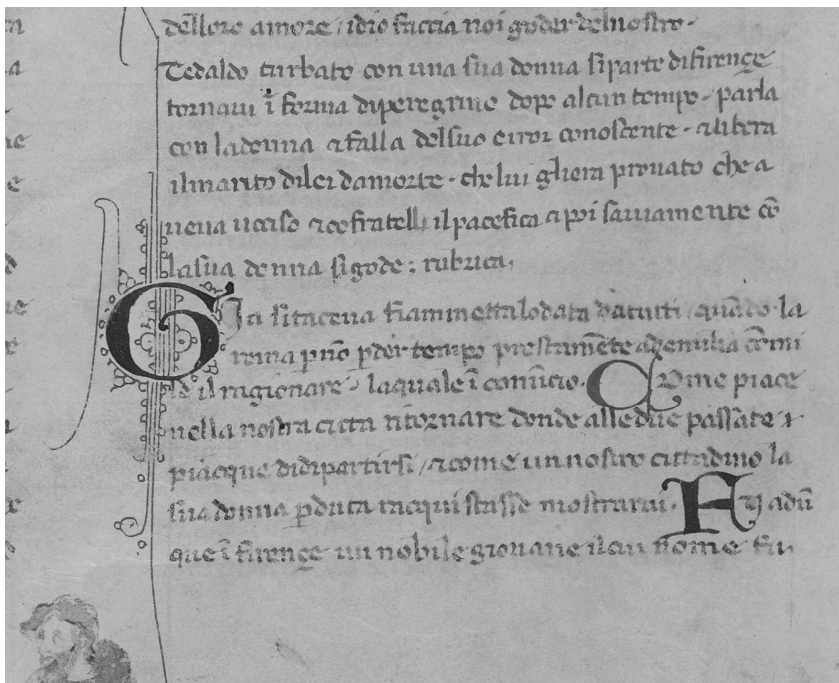 delloro amore / idio faccia noi goder del nostro.
Tedaldo turbato con una sua donna si parte di firençe
tornavi ī forma di peregrino dopo alcun tempo. parla
con la donna & falla del suo error conoscente. & libera
il marito di lei da morte. che lui gliera provato che a
veva ucciso & co fratelli il pacefica & poi saviamente cō
la sua donna si gode: rubrica,
Gia si taceva fiammetta lodata da tutti / quādo la
reina p nō pder tempo prestamēte ad emilia cōmi
se il ragionare. la quale ī comīcio. A me piace
nella nostra citta ritornare donde alle due passate
piacque di dipartirsi / & come un nostro cittadino la
sua donna pduta racquistasse mostrarvi. Fu adū
que ī firençe un nobile giovane il cui nome fu.